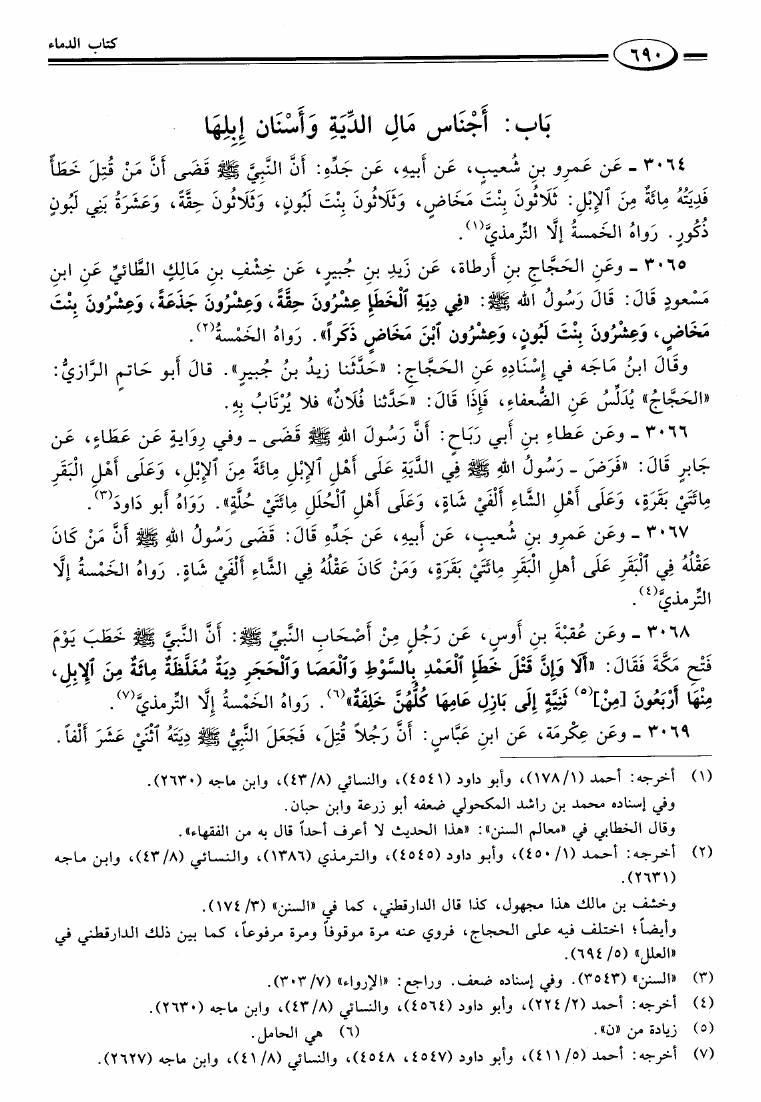 كتاب الدماء
٦٩٠
بَاب: أَجْنَاس مَالِ الدِّيَةِ وَأَسْنَان إِبِلِهَا
٣٠٦٤ ـ عَن عَمرِو بنِ شُعيبٍ، عَن أبيهِ، عَن جَدِّهِ: أَنَّ النبيَّ ﷺ قَضَى أَنَّ مَنْ قُتِلَ خَطَأً
فَدِيَتُهُ مِائَةٌ مِنَ الإِبْلِ: ثَلَاثُونَ بِنْتَ مَخَاضٍ، وَثَلَاثُونَ بِنْتَ لَبُونٍ، وَثَلَاثُونَ حِقَّةً، وَعَشَرَةُ بَنِي لَبُونٍ
ذُكُورٍ. رَواهُ الخَمسةُ إلَّا التِّرمذيَّ(١).
٣٠٦٥ ـ وعَنِ الحَجَّاجِ بنِ أرطاةَ، عَن زَيدِ بنِ جُبيرٍ، عَن خِشْفِ بنِ مَالِكٍ الطَّائيِّ عَنِ ابنِ
مَسْعودٍ قَالَ: قَالَ رَسُولُ الله ﷺ: «فِي دِيَةِ ٱلْخَطَإِ عِشْرُونَ حِقَّةً، وَعِشْرُونَ جَذَعَةً، وَعِشْرُونَ بِنْتَ
مَخَاضٍ، وَعِشْرُونَ بِنْتَ لَبُونٍ، وَعِشْرُونَ ٱبْنَ مَخَاضٍ ذَكَراً». رَواهُ الخَمْسةُ(٢).
وقَالَ ابنُ مَاجَه في إسْنَادِهِ عَنِ الحَجَّاجِ: «حَدَّثَنا زيدُ بنُ جُبيرٍ». قالَ أبو حَاتمٍ الرَّازيُّ:
«الحَجَّاجُ» يُدَلِّسُ عَنِ الضُّعفاءِ، فَإِذَا قَالَ: «حَدَّثنا فُلَانٌ» فلا يُرْتَابُ بِهِ.
٣٠٦٦ ـ وعَن عَطاءِ بنِ أبي رَبَاحٍ: أَنَّ رَسُولَ اللهِ ﷺ قَضَى ـ وفي رِوَايةٍ عَن عَطَاءٍ، عَن
جَابرٍ قَالَ: «فَرَضَ ـ رَسُولُ اللهِ ﷺ فِي الدِّيَةِ عَلَى أَهْلِ ٱلإِبْلِ مِائَةً مِنَ ٱلإِبْلِ، وَعَلَى أَهْلِ الْبَقَرِ
مِائَتَيْ بَقَرَةٍ، وَعَلَى أَهْلِ الشَّاءِ أَلْفَيْ شَاةٍ، وَعَلَى أَهْلِ ٱلْحُلَلِ مِائَتَيْ حُلَّةٍ». رَوَاهُ أبو دَاودَ(٣).
٣٠٦٧ ـ وعَن عَمرِو بنِ شُعيبٍ، عَن أبيهِ، عَن جَدِّهِ قَالَ: قَضَى رَسُولُ اللهِ ﷺ أَنَّ مَنْ كَانَ
عَقْلُهُ فِي ٱلْبَقَرِ عَلَى أهلِ الْبَقَرِ مِائَتَيْ بَقَرَةٍ، وَمَنْ كَانَ عَقْلُهُ فِي الشَّاءِ أَلْفَيْ شَاةٍ. رَواهُ الخَمْسةُ إلَّا
التِّرمذيَّ(٤).
٣٠٦٨ ـ وعَن عُقبَةَ بنِ أَوسٍ، عَن رَجُلٍ مِنْ أَصْحَابِ النبيِّ ﷺ: أَنَّ النبيَّ ﷺ خَطَبَ يَوْمَ
فَتْحِ مَكَّةَ فَقَالَ: «أَلَا وَإِنَّ قَتْلَ خَطَإِ ٱلْعَمْدِ بِالسَّوْطِ وَٱلْعَصَا وَٱلْحَجَرِ دِيَةٌ مُغَلَّظَةٌ مِائَةٌ مِنَ ٱلإِبِلِ،
مِنْهَا أَرْبَعُونَ [مِنْ](٥) ثَنِيَّةٍ إِلَى بَازِلِ عَامِهَا كُلُّهُنَّ خَلِفَةٌ»(٦). رَواهُ الخَمسةُ إلَّا التِّرمذيَّ(٧).
٣٠٦٩ ـ وعَن عِكْرِمَةَ، عَن ابنِ عَبَّاسٍ: أَنَّ رَجُلاً قُتِلَ، فَجَعَلَ النبيُّ ﷺ دِيَتَهُ ٱثْنَيْ عَشَرَ أَلْفاً.
(١) أخرجه: أحمد (١/ ١٧٨)، وأبو داود (٤٥٤١)، والنسائي (٨/ ٤٣)، وابن ماجه (٢٦٣٠).
وفي إسناده محمد بن راشد المكحولي ضعفه أبو زرعة وابن حبان.
وقال الخطابي في «معالم السنن»: «هذا الحديث لا أعرف أحداً قال به من الفقهاء».
(٢) أخرجه: أحمد (١/ ٤٥٠)، وأبو داود (٤٥٤٥)، والترمذي (١٣٨٦)، والنسائي (٨/ ٤٣)، وابن ماجه
(٢٦٣١).
وخشف بن مالك هذا مجهول، كذا قال الدارقطني، كما في «السنن» (٣/ ١٧٤).
وأيضاً؛ اختلف فيه على الحجاج، فروي عنه مرة موقوفاً ومرة مرفوعاً، كما بين ذلك الدارقطني في
«العلل» (٥/ ٦٩٤).
(٣) «السنن» (٣٥٤٣). وفي إسناده ضعف. وراجع: «الإرواء» (٧/ ٣٠٣).
(٤) أخرجه: أحمد (٢/ ٢٢٤)، وأبو داود (٤٥٦٤)، والنسائي (٨/ ٤٣)، وابن ماجه (٢٦٣٠).
(٥) زيادة من «ن». (٦) هي الحامل.
(٧) أخرجه: أحمد (٥/ ٤١١)، وأبو داود (٤٥٤٧، ٤٥٤٨)، والنسائي (٨/ ٤١)، وابن ماجه (٢٦٢٧).